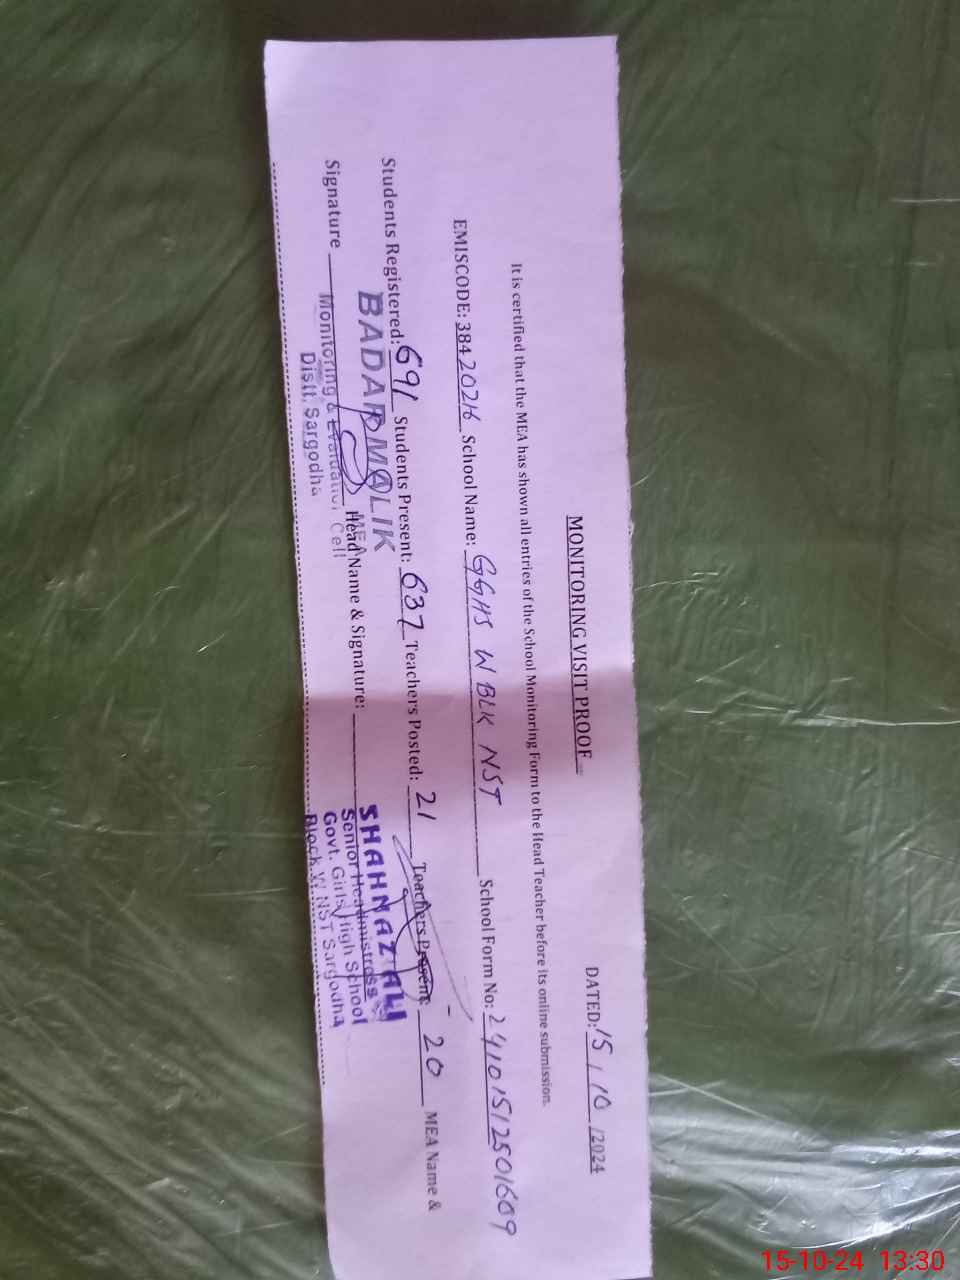 MONITORING VISIT PROOF
DATED: 15 / 10 /2024
It is certified that the MEA has shown all entries of the School Monitoring Form to the Head Teacher before its online submission.
EMISCODE: 38420216 School Name: GGHS W BLK NST School Form No: 24101512501609
Students Registered: 691 Students Present: 637 Teachers Posted: 21 Teachers Present: 20 MEA Name &
Signature Head Name & Signature:
BADAR MALIK
MEA
Monitoring & Evaluation Cell
Distt. Sargodha
SHAHNAZ ALI
Senior Headmistress
Govt. Girls High School
Block W NST Sargodha
15-10-24 13:30